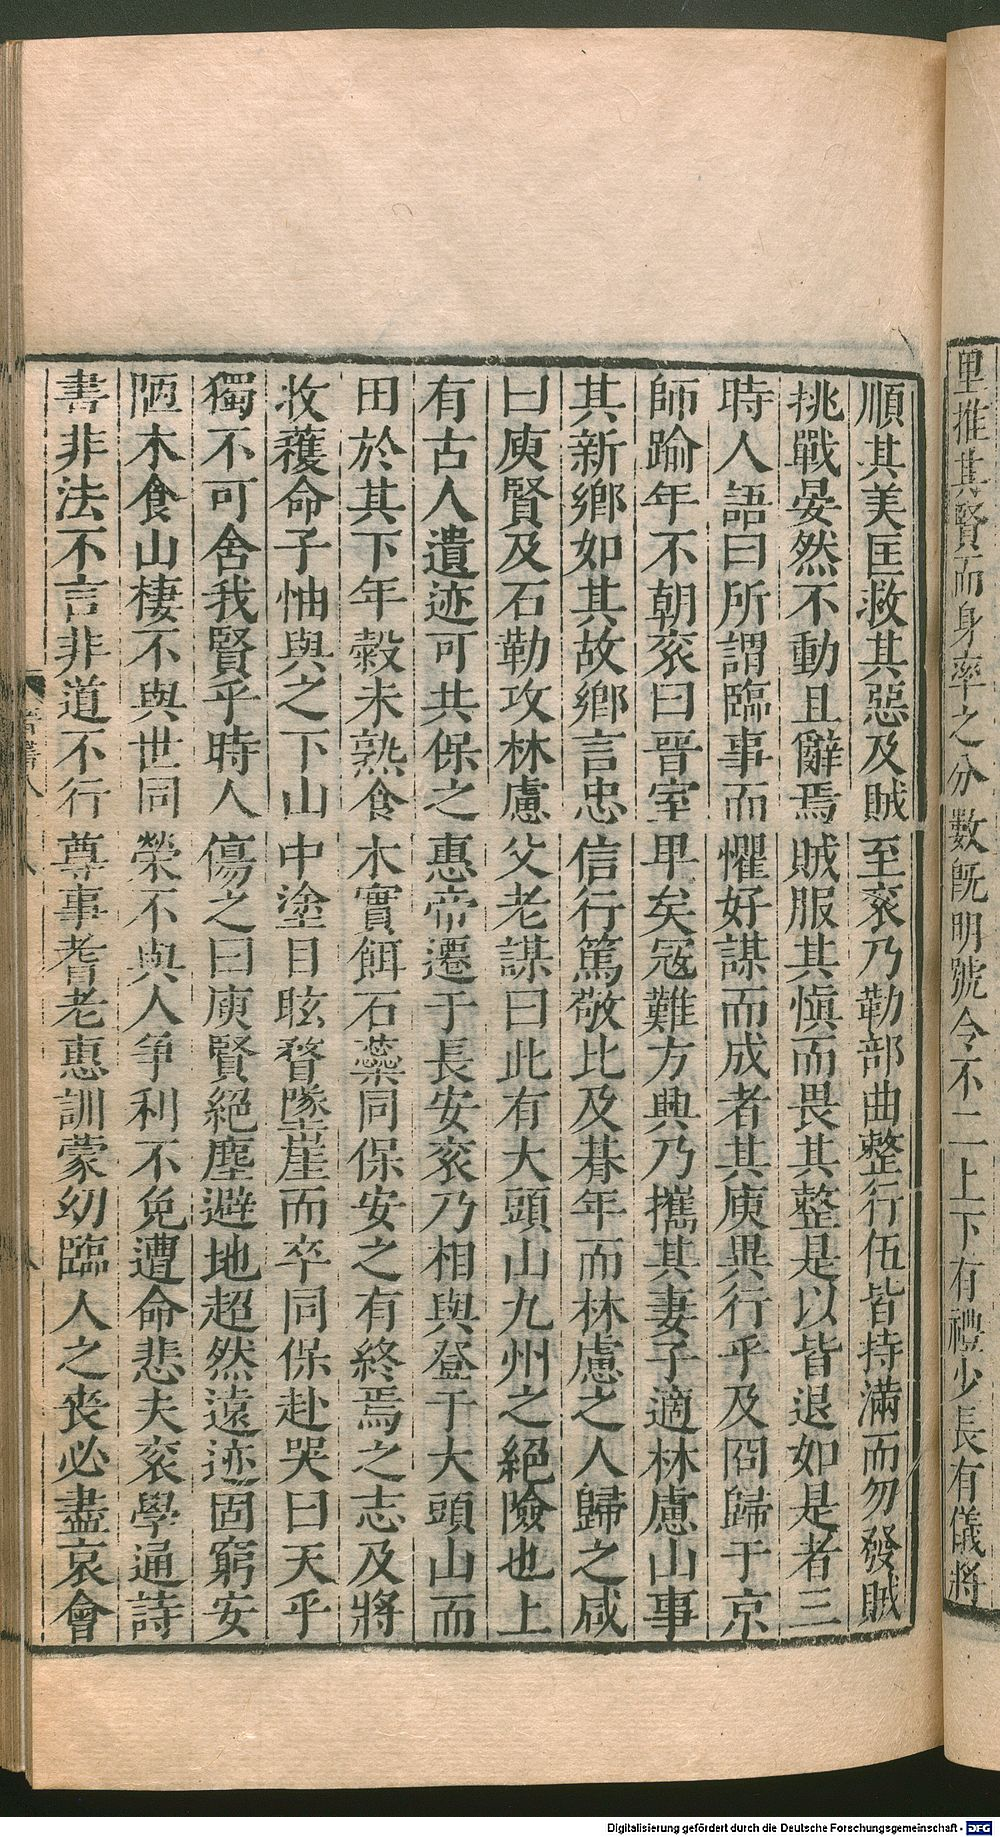 里推其賢而身率之分數旣明號令不二上下有禮少長有儀將
順其美匡救其惡及賊至衮乃勒部曲整行伍皆持滿而勿發賊
挑戰晏然不動且辭焉賊服其愼而畏其整是以皆退如是者三
時人語曰所謂臨事而懼好謀而成者其庾異行乎及冏歸于京
師踰年不朝衮曰晉室卑矣寇難方興乃攜其妻子適林慮山事
其新鄉如其故鄉言忠信行篤敬比及朞年而林慮之人歸之咸
曰庾賢及石勒攻林慮父老謀曰此有大頭山九州之絕險也上
有古人遺迹可共保之惠帝遷于長安衮乃相與登于大頭山而
田於其下年穀未熟食木實餌石蘂同保安之有終焉之志及將
收穫命子怞與之下山中塗目眩瞀墜崖而卒同保赴哭曰天乎
獨不可舍我賢乎時人傷之曰庾賢絕塵避地超然遠迹固窮安
陋木食山棲不與世同榮不與人爭利不免遭命悲夫衮學通詩
書非法不言非道不行尊事耆老惠訓蒙幼臨人之喪必盡哀會
Digitalisierung gefördert durch die Deutsche Forschungsgemeinschaft - DFG